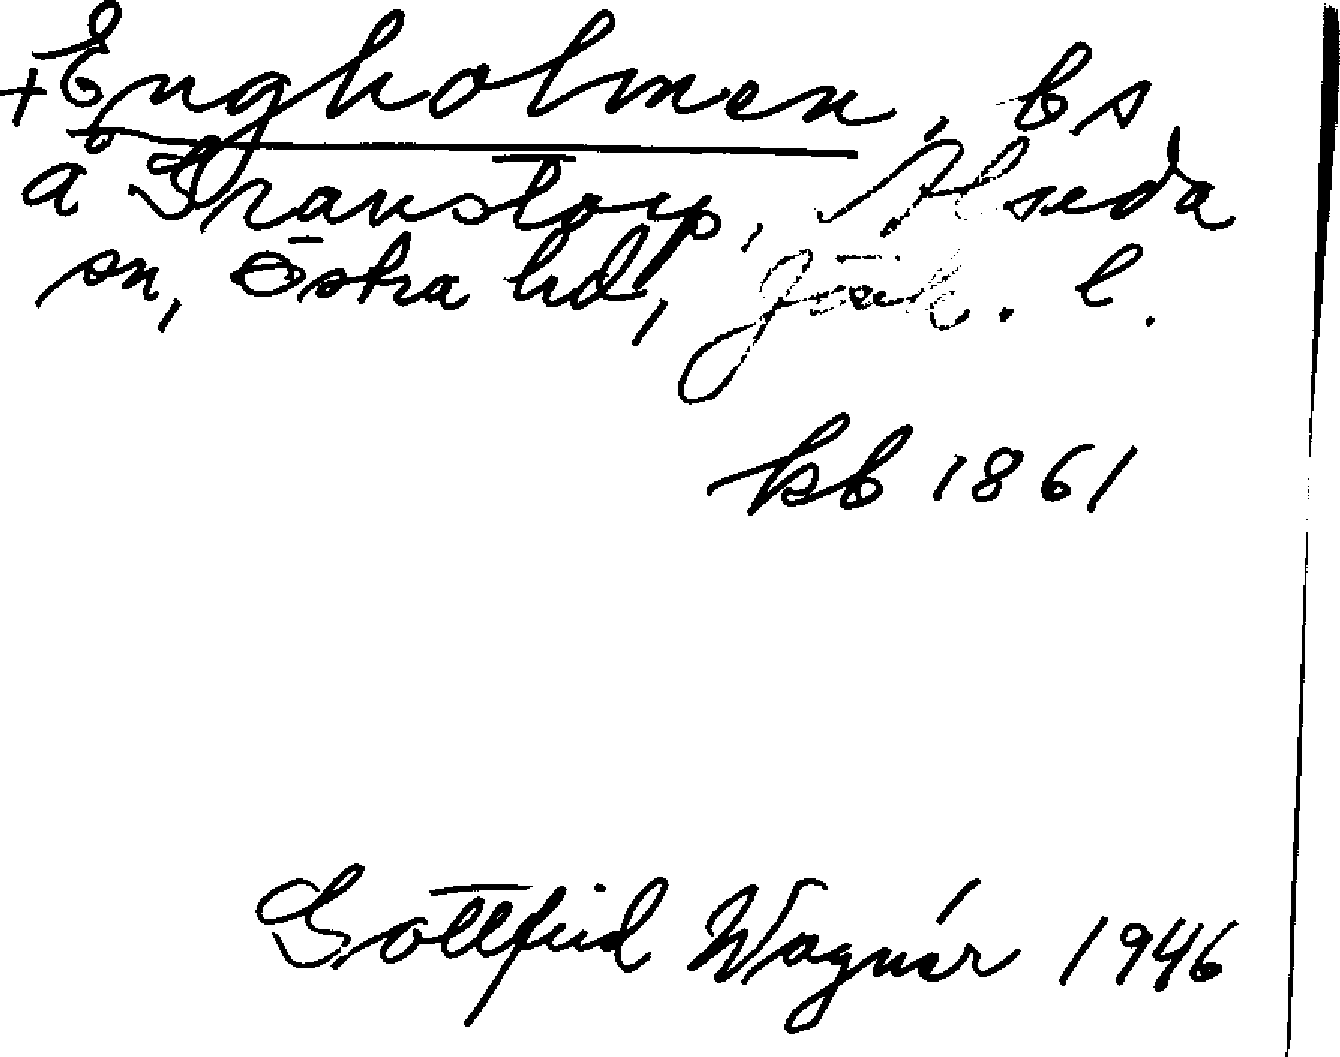 + Engholmen, bs
å Granstorp, Alseda
sn, Östra hd, Jönk. l.
kb 1861
Gottfrid Wagnér 1946